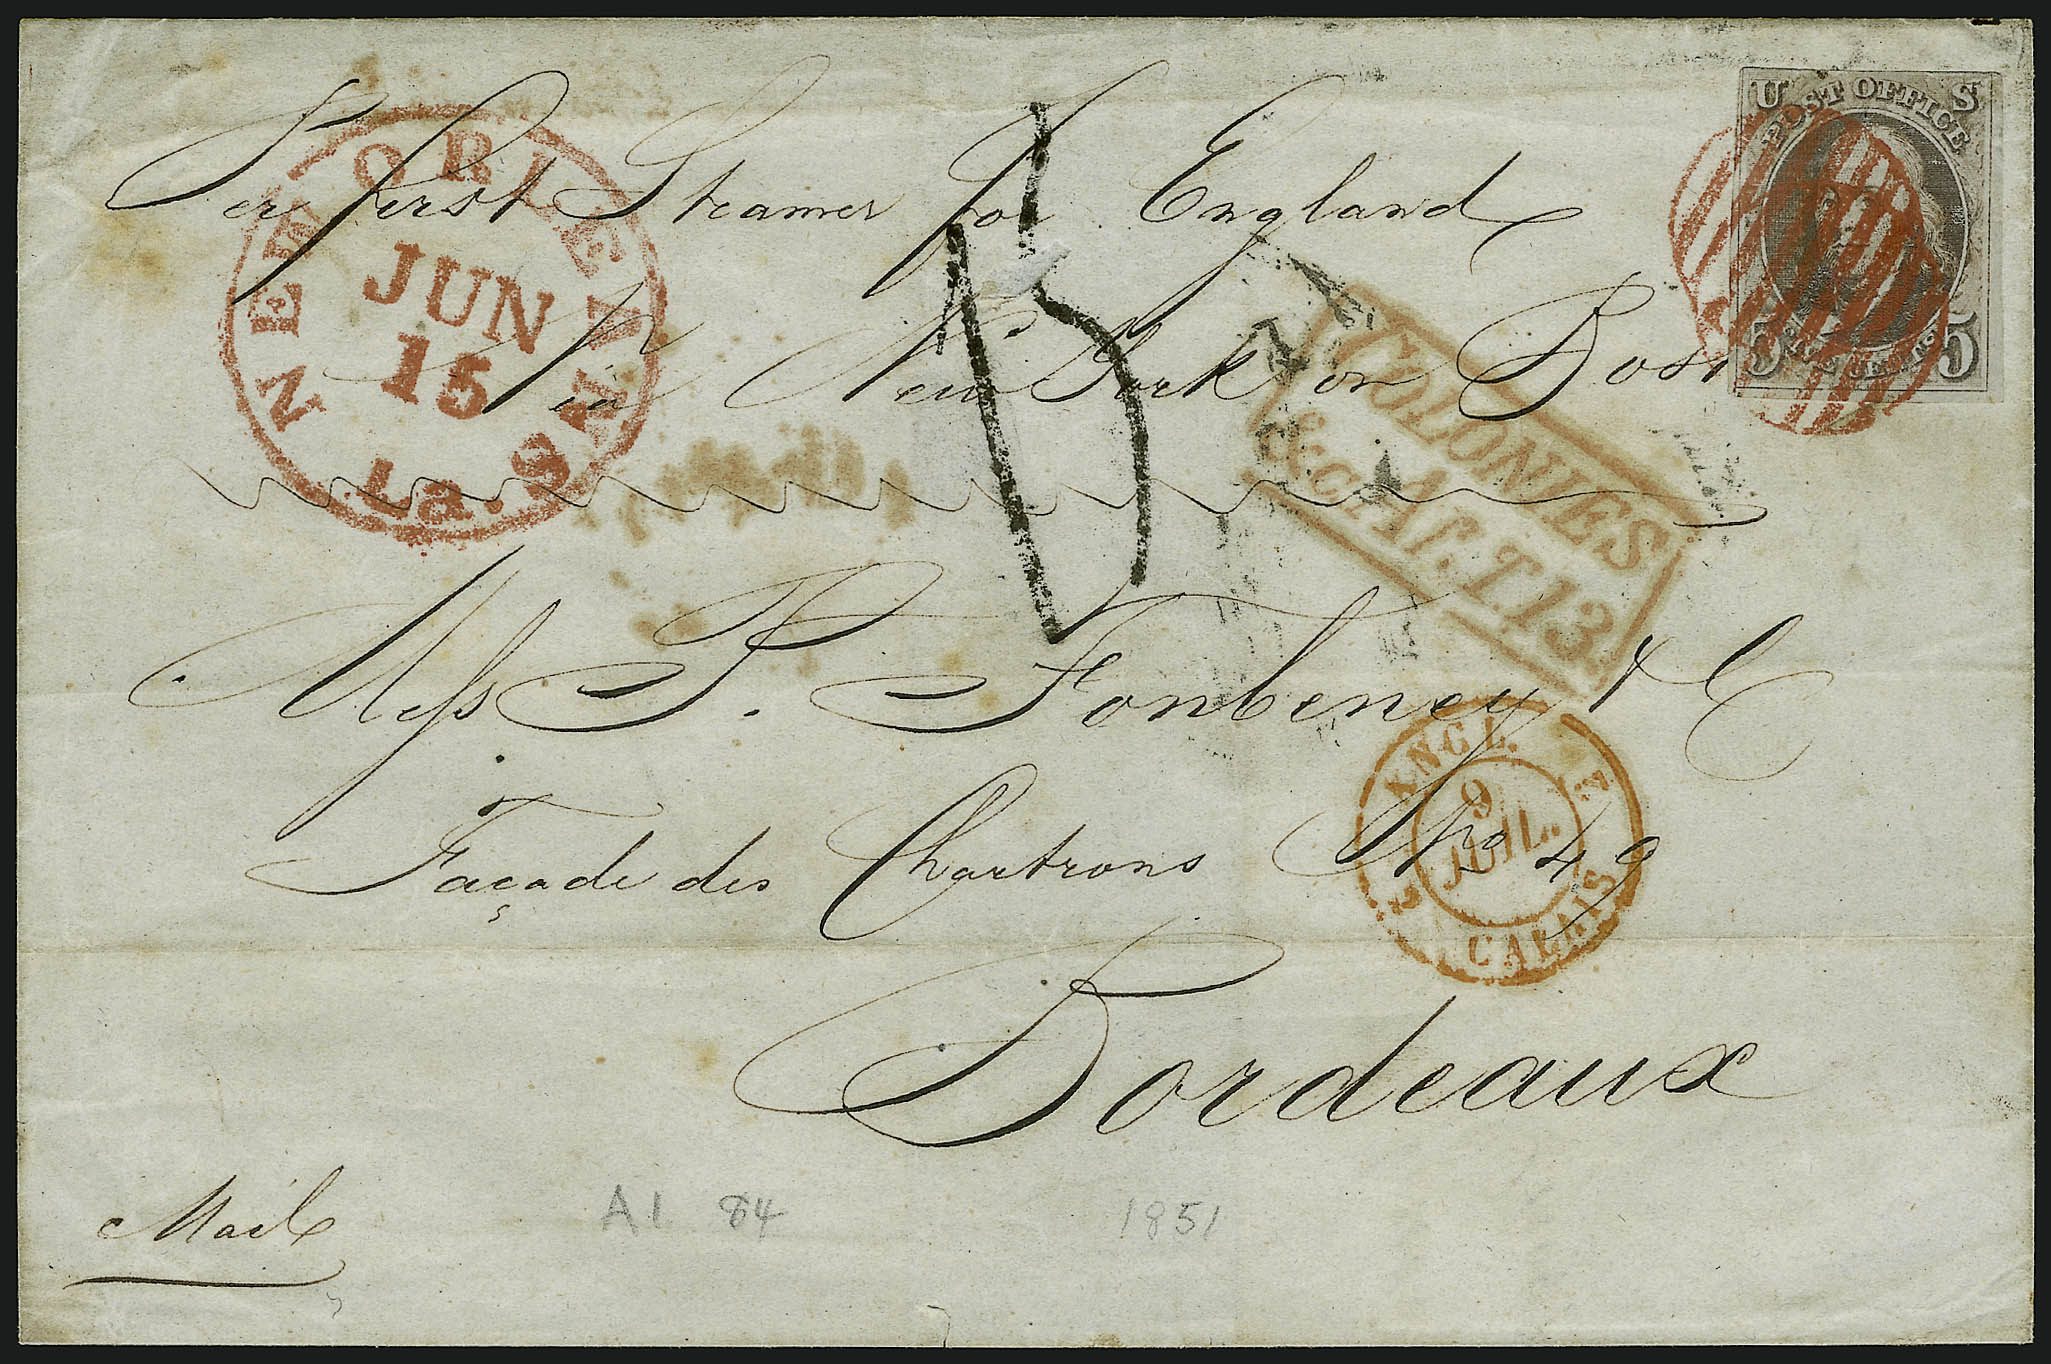 Per first Steamer for England
Via New York or Bos
Mess P. Fonbeney & C
Façade des Chartrons No 49
Bordeaux
Mail
A1 84
1851
NEW ORLEANS
La.
JUN
15
15
U S
POST OFFICE
5 FIVE CENTS 5
COLONIES
&c. ART. 13.
ANGL.
2
9
JUIL.
2
CALAIS